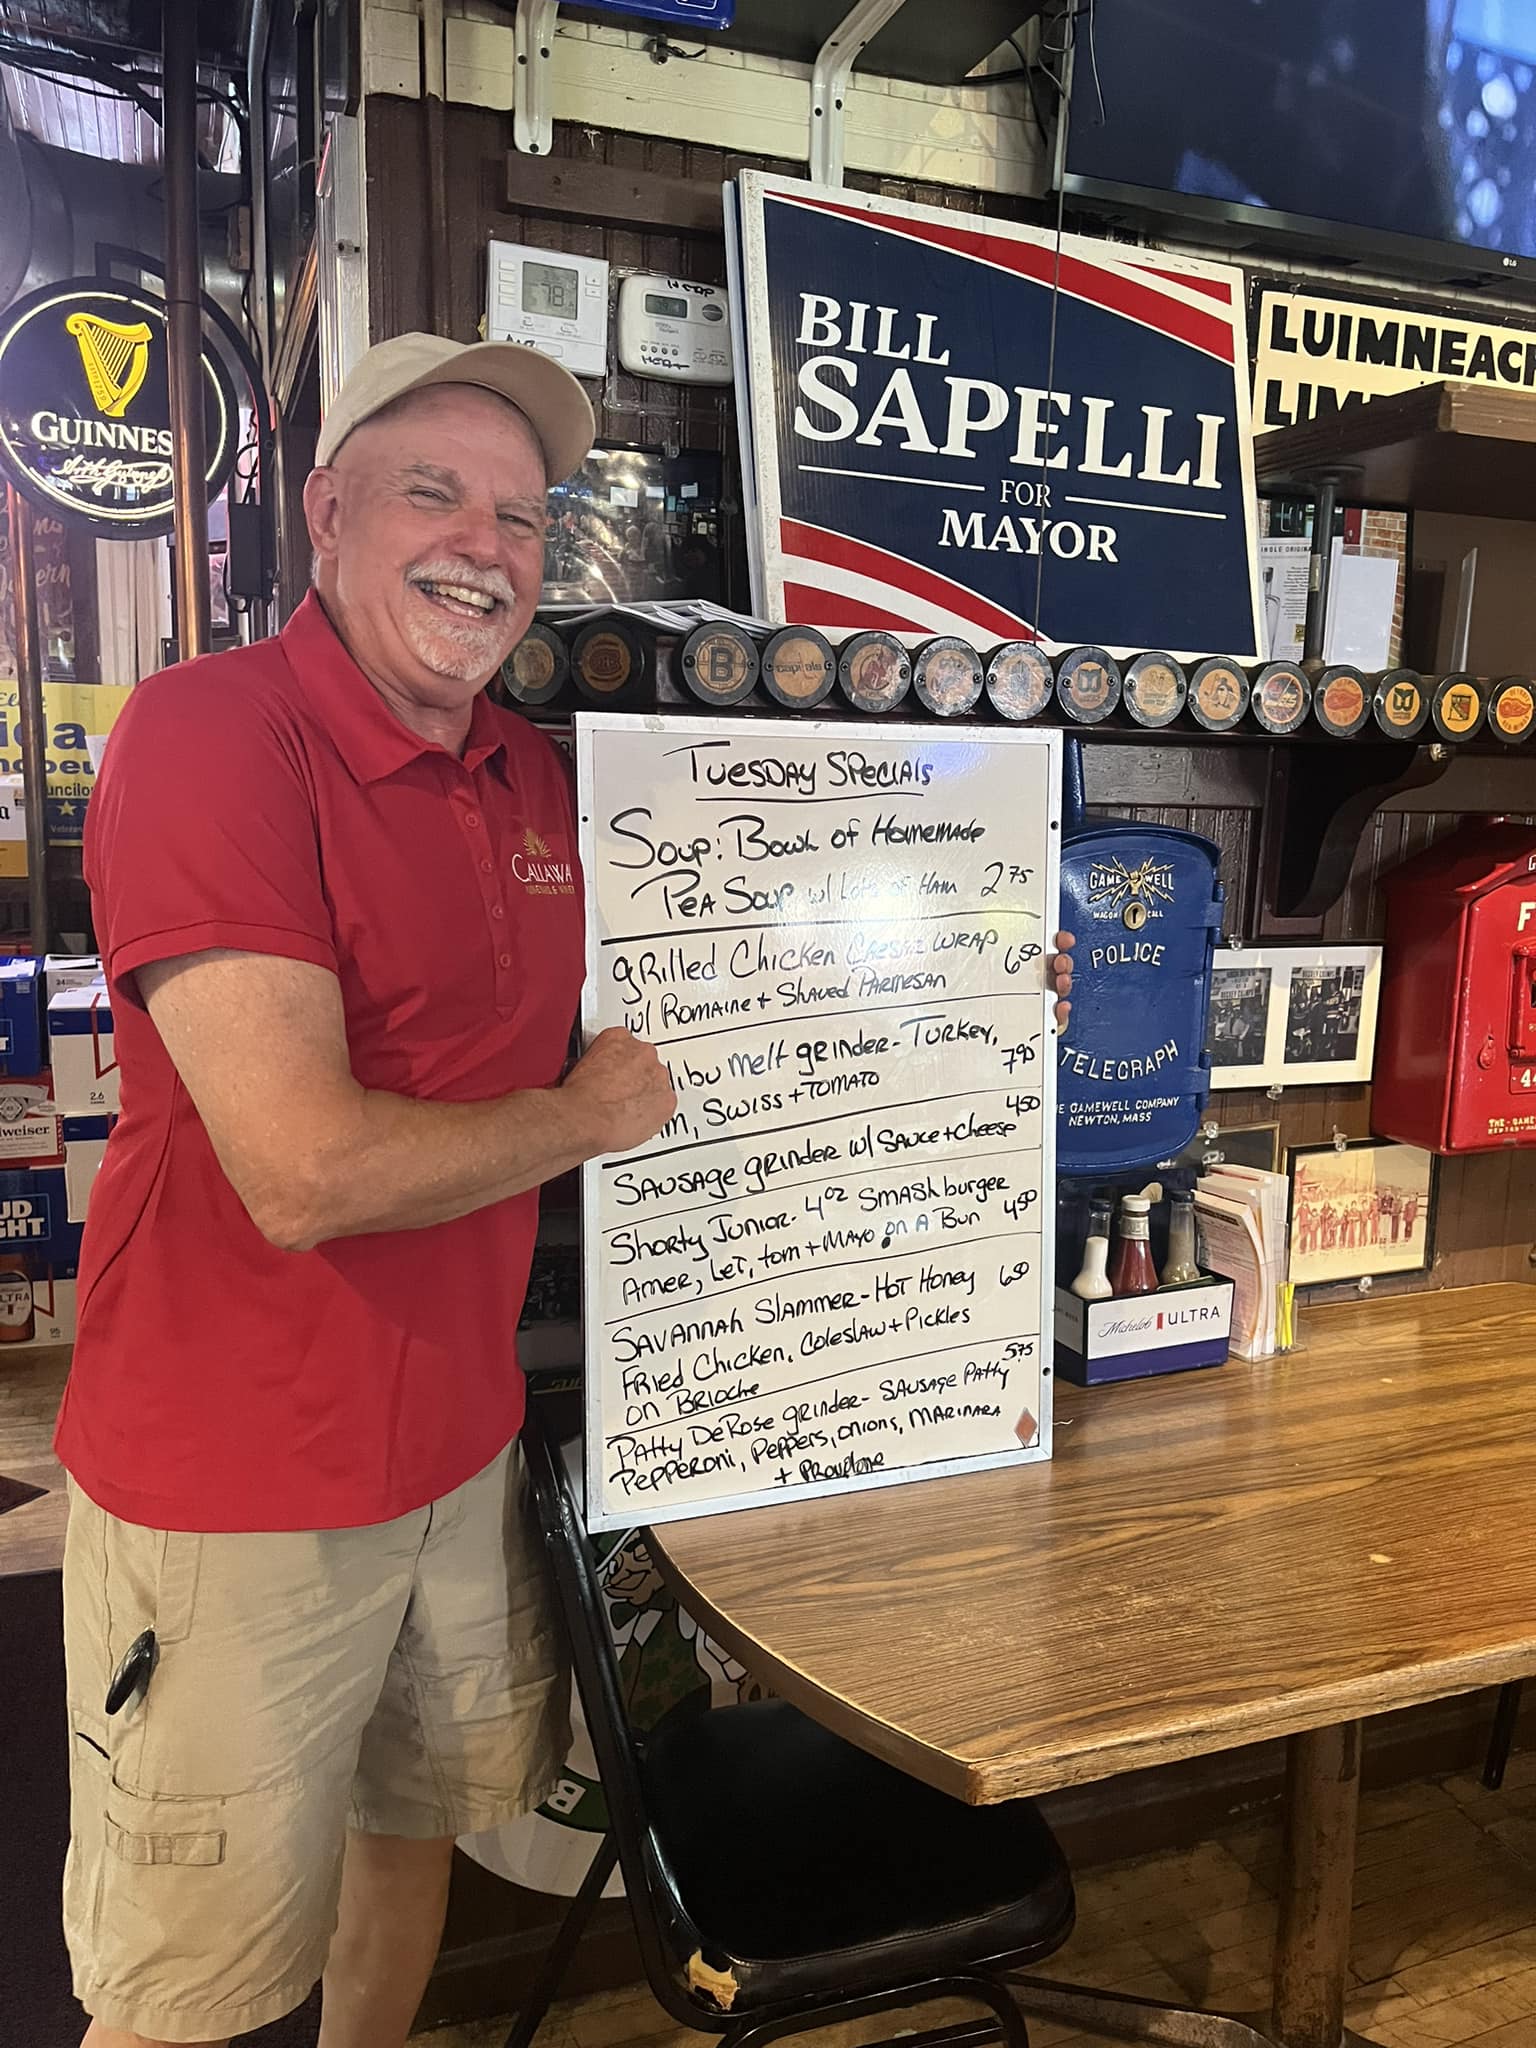 GUINNES
BILL
SAPELLI
FOR
MAYOR
LUIMNEACH
78
B
TUESDAY SPECIALS
SOUP: BOWL OF HOMEMADE
PEA SOUP w/ LOTS OF HAM 2 75
GRILLED CHICKEN CAESAR WRAP 6 50
w/ ROMAINE + SHAVED PARMESAN
LIBU MELT GRINDER - TURKEY, 7 95
SWISS + TOMATO
SAUSAGE GRINDER w/ SAUCE + CHEESE 4 50
SHORTY JUNIOR - 4 OZ SMASH BURGER
AMER, LET, TOM + MAYO ON A BUN 4 50
SAVANNAH SLAMMER - HOT HONEY 6 50
FRIED CHICKEN, COLESLAW + PICKLES
ON BRIOCHE
PATTY DEROSE GRINDER - SAUSAGE PATTY 5 75
PEPPERONI, PEPPERS, ONIONS, MARINARA
+ PROVPLONE
CALLAWA
GAMEWELL
WAGON CALL
POLICE
TELEGRAPH
THE GAMEWELL COMPANY
NEWTON, MASS
Michelob ULTRA
LG